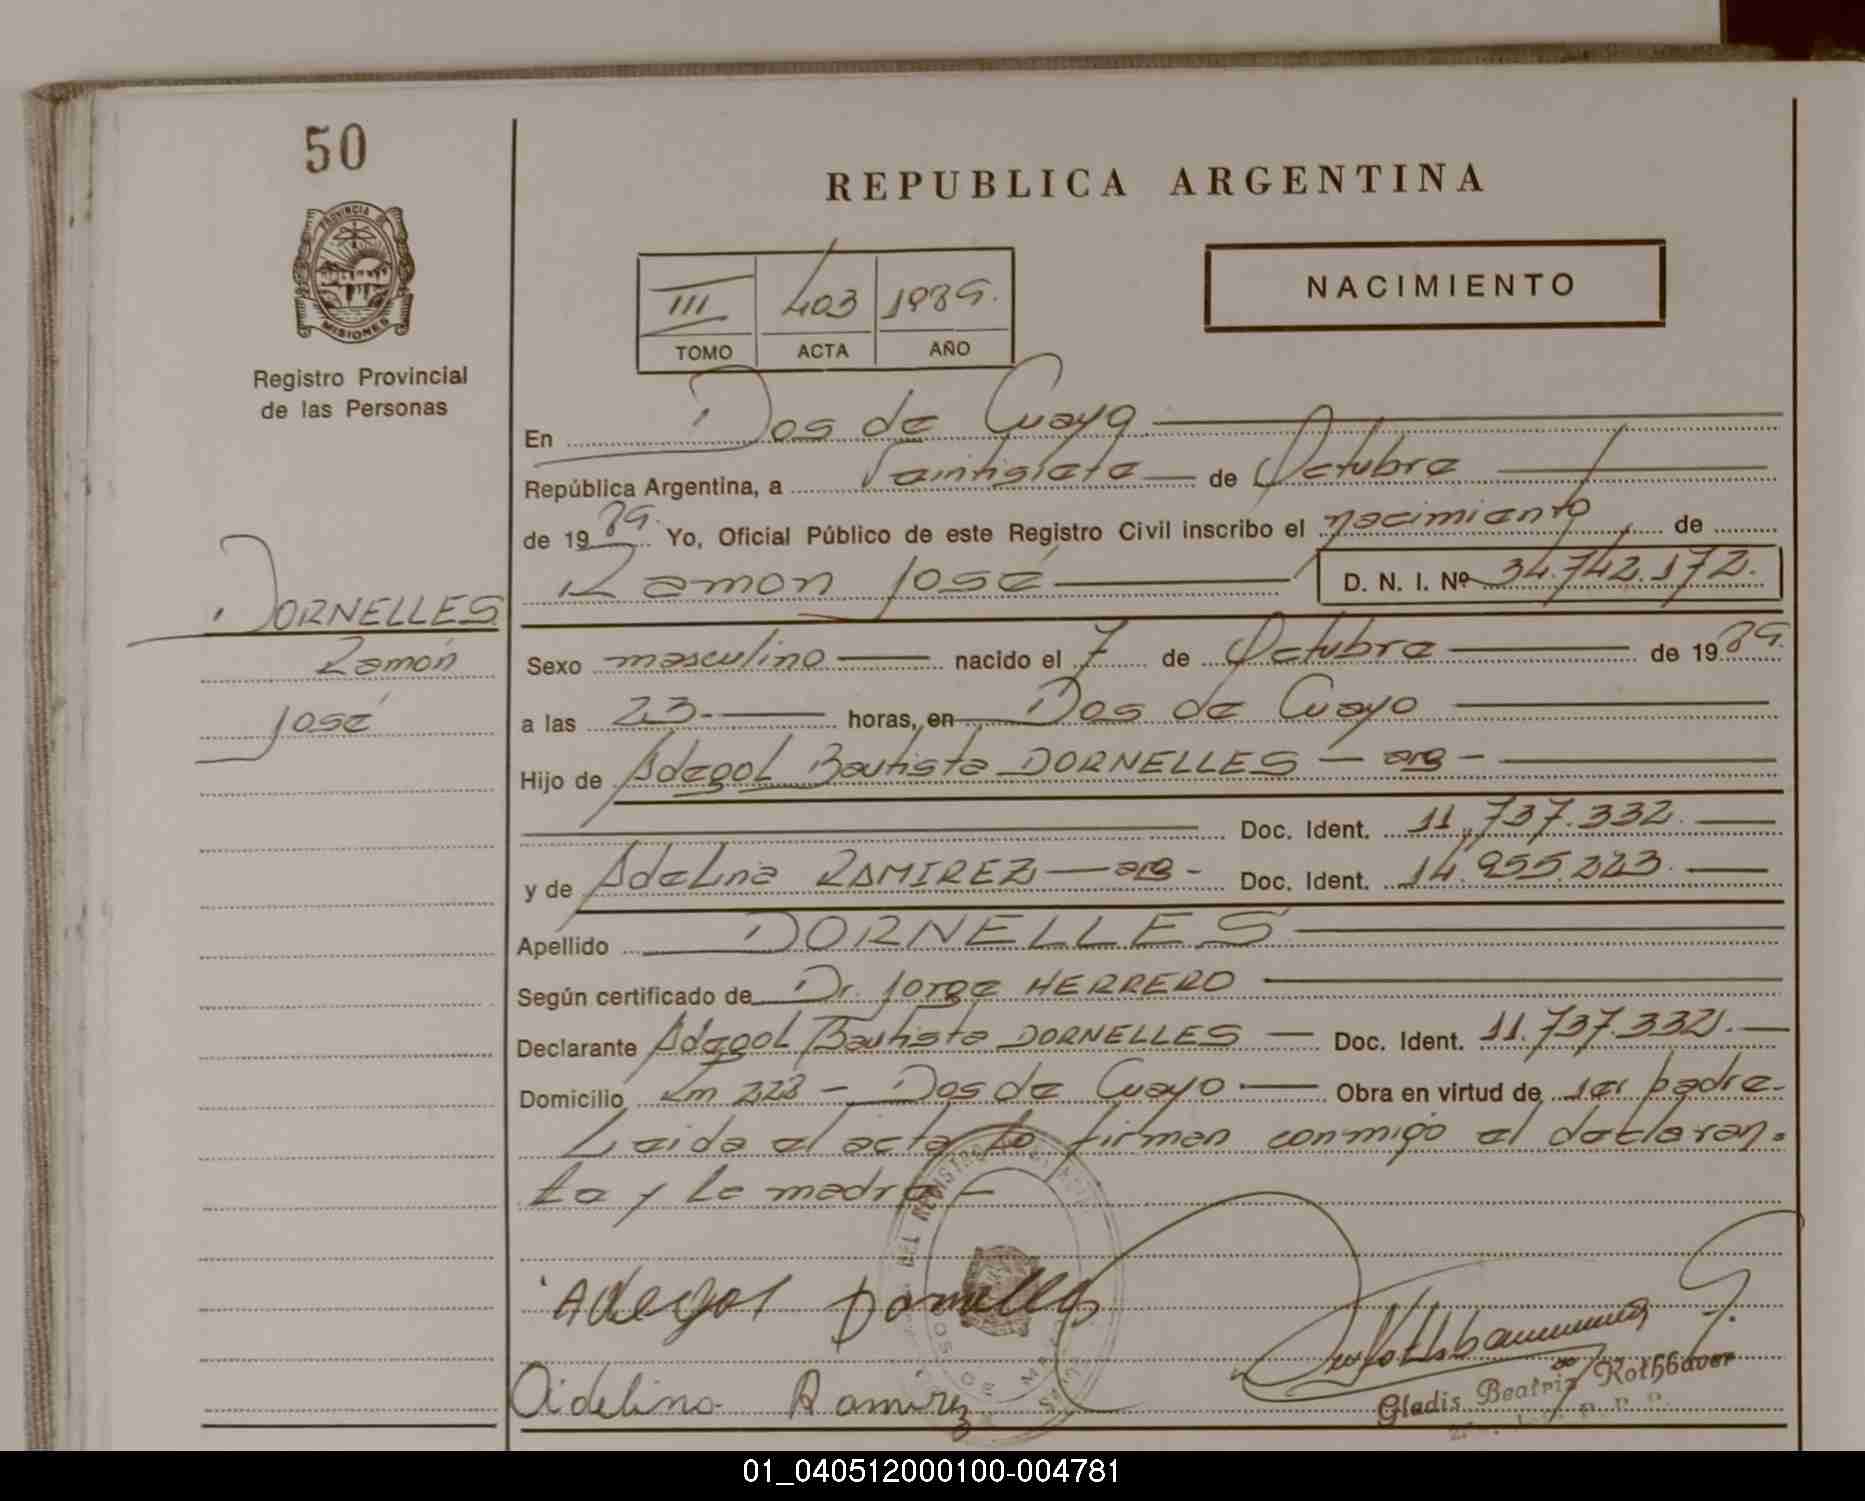 50
PROVINCIA DE
MISIONES
Registro Provincial
de las Personas
DORNELLES
Ramón
José
REPUBLICA ARGENTINA
III 403 1989.
TOMO ACTA AÑO
NACIMIENTO
En Dos de Mayo
República Argentina, a Veintisiete de Octubre
de 1989. Yo, Oficial Público de este Registro Civil inscribo el nacimiento de
Ramon José D. N. I. Nº 34.742.172.
Sexo masculino nacido el 7 de Octubre de 1989.
a las 23.- horas, en Dos de Mayo
Hijo de Adegol Bautista DORNELLES - arg -
Doc. Ident. 11.737.332.
y de Adelina RAMIREZ - arg - Doc. Ident. 14.955.223.
Apellido DORNELLES
Según certificado de Dr. Jorge HERRERO
Declarante Adegol Bautista DORNELLES - Doc. Ident. 11.737.332.
Domicilio Km 223 - Dos de Mayo Obra en virtud de ser padre.
Leida el acta la firman conmigo el declaran-
te y la madre -
Adegol Dornelles
Aidelina Ramirez
Gladis Beatriz Rothbauer
01_040512000100-004781